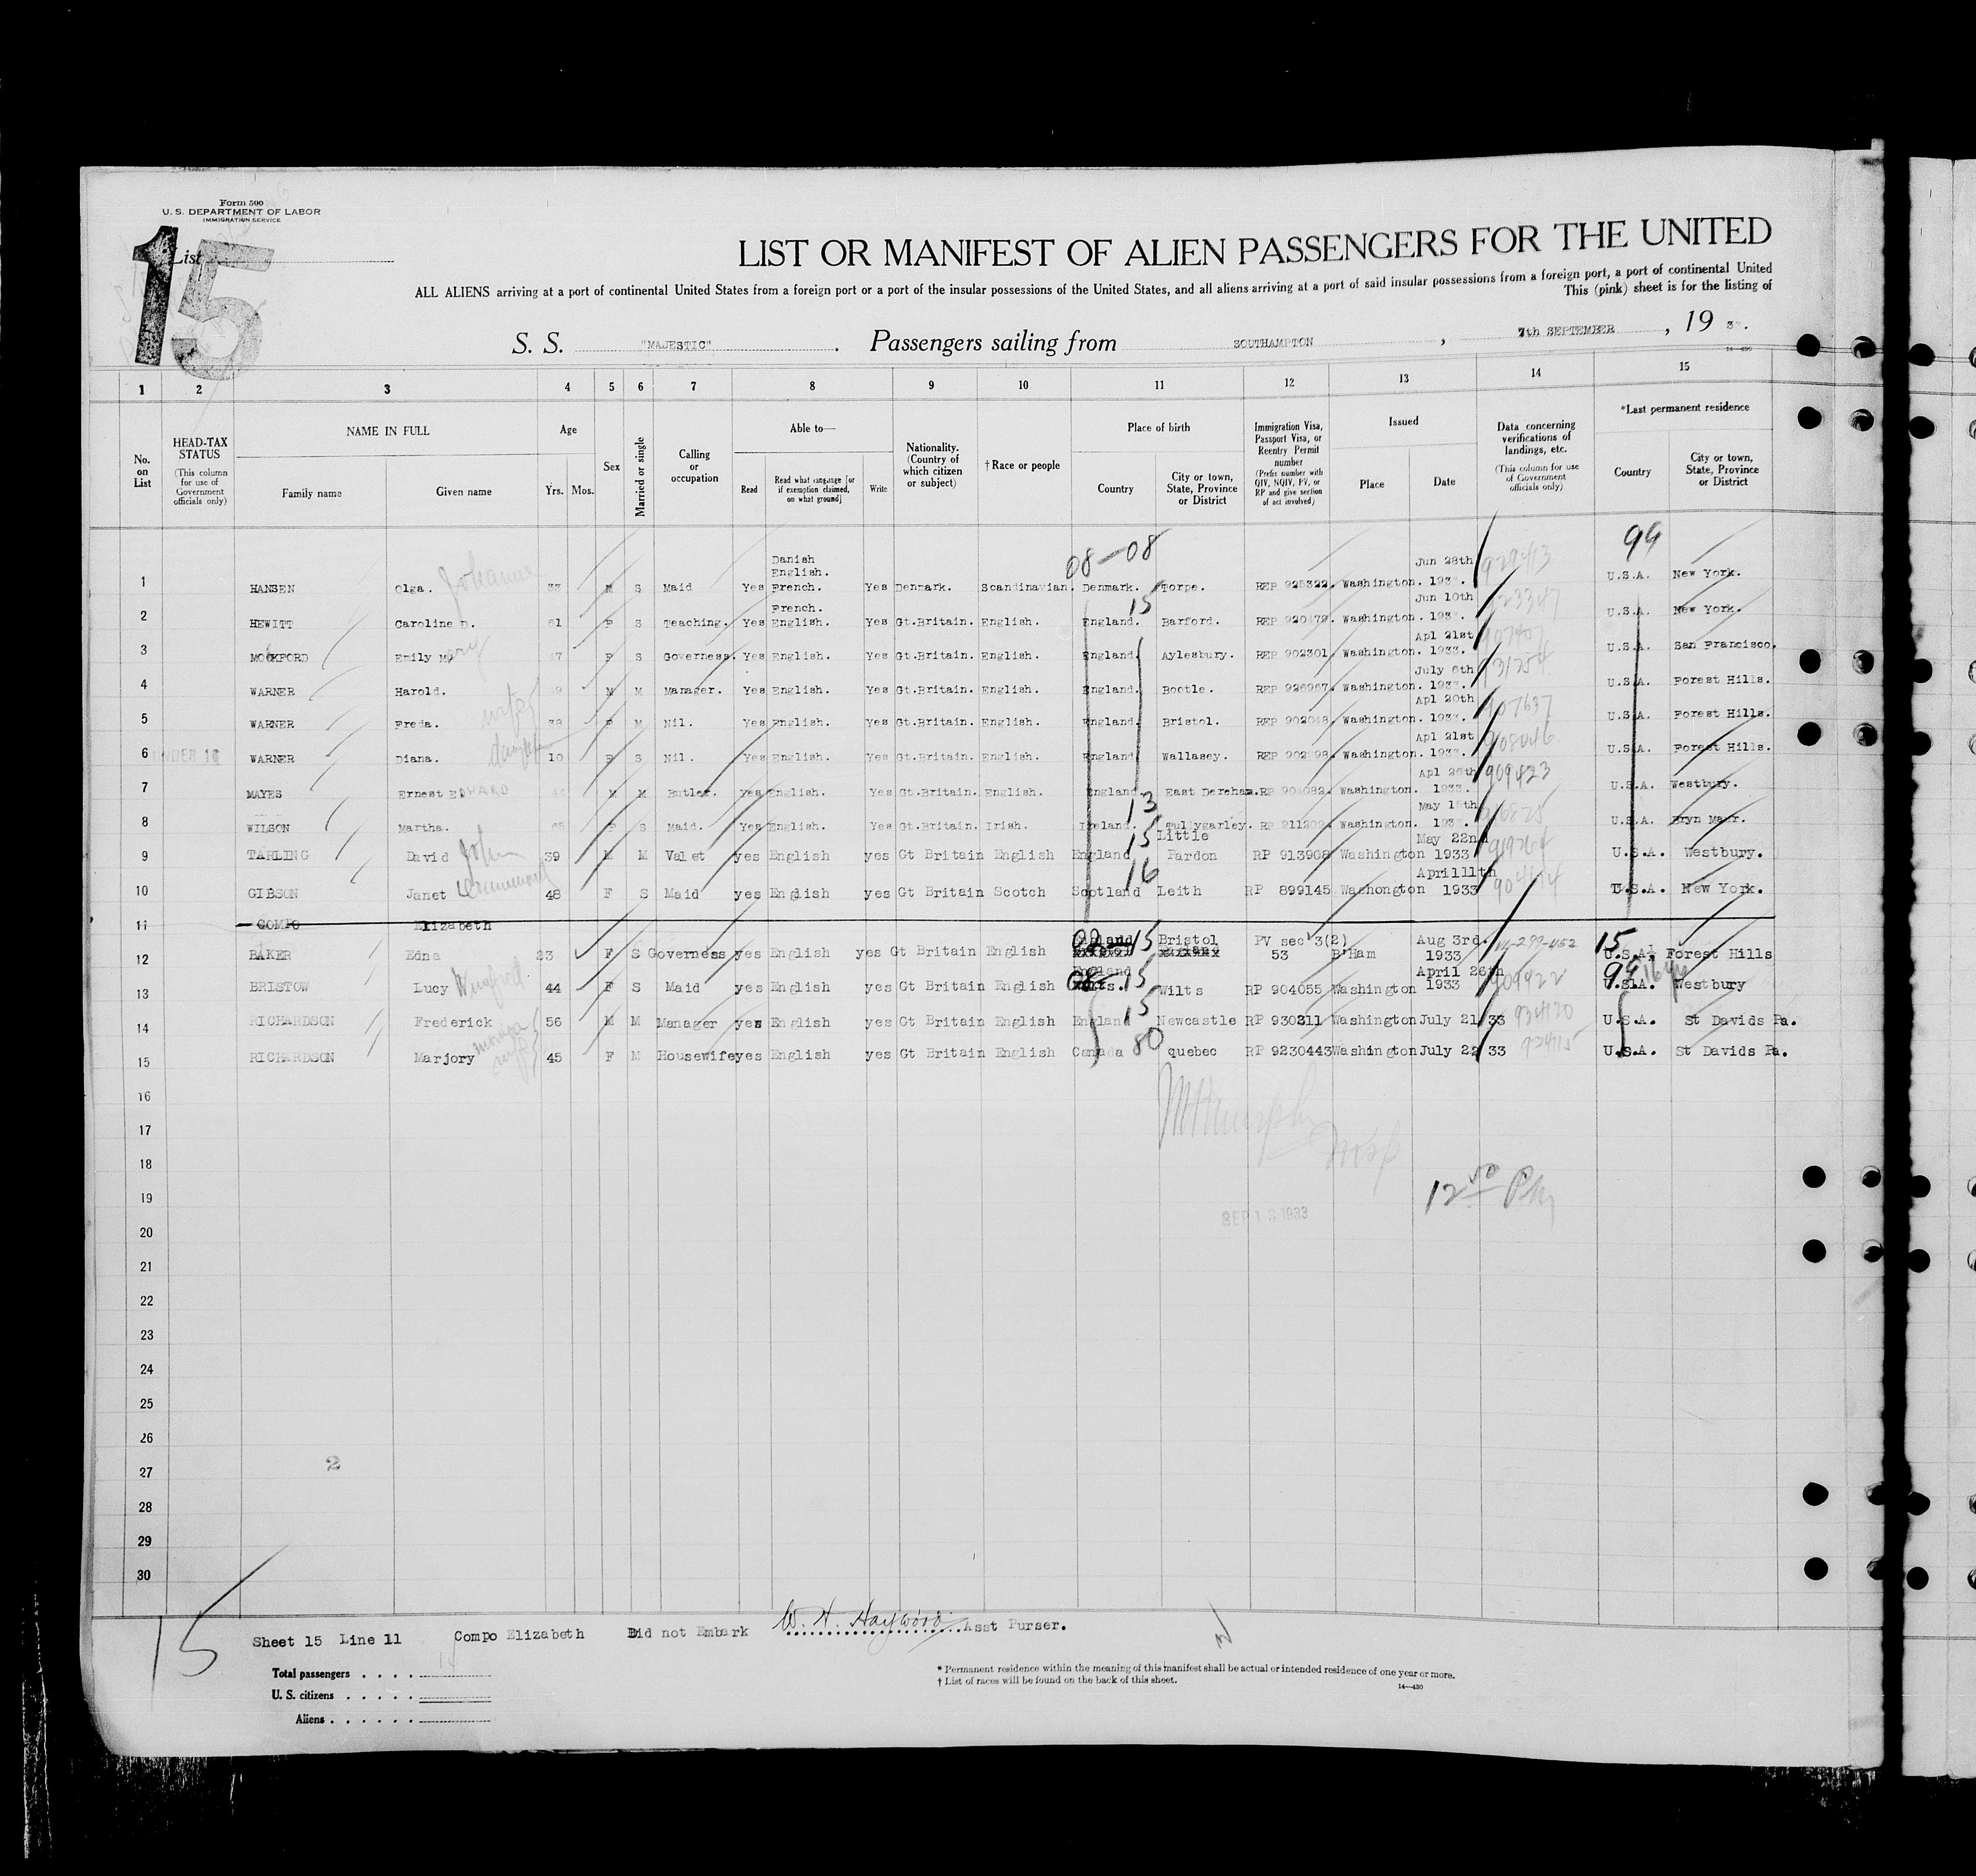 Form 500
U. S. DEPARTMENT OF LABOR
IMMIGRATION SERVICE
List
15
LIST OR MANIFEST OF ALIEN PASSENGERS FOR THE UNITED
ALL ALIENS arriving at a port of continental United States from a foreign port or a port of the insular possessions of the United States, and all aliens arriving at a port of said insular possessions from a foreign port, a port of continental United
This (pink) sheet is for the listing of
S. S. "MAJESTIC". Passengers sailing from SOUTHAMPTON, 7th SEPTEMBER, 19 3
1 2 3 4 5 6 7 8 9 10 11 12 13 14 15
No. on List
HEAD-TAX STATUS (This column for use of Government officials only)
NAME IN FULL
Family name Given name
Age
Yrs. Mos.
Sex
Married or single
Calling or occupation
Able to—
Read Read what language [or if exemption claimed, on what ground] Write
Nationality. (Country of which citizen or subject)
†Race or people
Place of birth
Country City or town, State, Province or District
Immigration Visa, Passport Visa, or Reentry Permit number (Prefix number with QIV, NQIV, PV, or RP and give section of act involved)
Issued
Place Date
Data concerning verifications of landings, etc. (This column for use of Government officials only)
*Last permanent residence
Country City or town, State, Province or District
08-08 99
1 HANSEN Olga. 33 M S Maid Yes Danish English. French. Yes Denmark. Scandinavian. Denmark. Torpe. REP 925322. Washington. Jun 28th 193 . U.S.A. New York.
2 HEWITT Caroline D. 61 F S Teaching. Yes French. English. Yes Gt.Britain. English. England. 15 Barford. REP 920479. Washington. Jun 10th 193 . U.S.A. New York.
3 MOCKFORD Emily Mary 47 F S Governess. Yes English. Yes Gt.Britain. English. England. Aylesbury. REP 902301. Washington. Apl 21st 1933. U.S.A. San Francisco.
4 WARNER Harold. 39 M M Manager. Yes English. Yes Gt.Britain. English. England. Bootle. REP 926967. Washington. July 6th 1933. 931254 U.S.A. Forest Hills.
5 WARNER Freda. wife 38 F M Nil. Yes English. Yes Gt.Britain. English. England. Bristol. REP 902048. Washington. Apl 20th 193 . 907637 U.S.A. Forest Hills.
6 UNDER 16 WARNER Diana. daughter 10 F S Nil. Yes English. Yes Gt.Britain. English. England Wallasey. REP 902298. Washington. Apl 21st 193 . 908046 U.S.A. Forest Hills.
7 MAYES Ernest EDWARD M M Butler. yes English. Yes Gt.Britain. English. England East Dereham. RP 904082. Washington. Apl 26th 1933. 909423 U.S.A. Westbury.
8 WILSON Martha. F S Maid. Yes English. Yes Gt.Britain. Irish. Ireland. 13 Tullygarley. RP 911209. Washington. May 15th 193 . U.S.A. Bryn Mawr.
9 TARLING David John 39 M M Valet yes English yes Gt Britain English England 15 Little Fardon RP 913908 Washington May 22nd 1933 919764 U.S.A. Westbury.
10 GIBSON Janet Drummond 48 F S Maid yes English yes Gt Britain Scotch Scotland 16 Leith RP 899145 Washongton April11th 1933 U.S.A. New York.
11 COMPO Elizabeth
12 BAKER Edna 23 F S Governess yes English yes Gt Britain English England 15 Bristol PV sec 3(2) 53 B'Ham Aug 3rd. 1933 15 U.S.A. Forest Hills
13 BRISTOW Lucy Winifred 44 F S Maid yes English yes Gt Britain English England 15 Wilts RP 904055 Washington April 26th 1933 909922 99 U.S.A. Westbury
14 RICHARDSON Frederick 56 M M Manager yes English yes Gt Britain English England 15 Newcastle RP 930211 Washington July 21 33 U.S.A. St Davids Pa.
15 RICHARDSON Marjory wife 45 F M Housewife yes English yes Gt Britain English Canada 80 quebec RP 9230443 Washington July 22 33 U.S.A. St Davids Pa.
16
17
18
12 50 PM
19
SEP 13 1933
20
21
22
23
24
25
26
27
2
28
29
30
15
Sheet 15 Line 11 Compo Elizabeth Did not Embark W. H. Haywood Asst Purser.
Total passengers
U. S. citizens
Aliens
* Permanent residence within the meaning of this manifest shall be actual or intended residence of one year or more.
† List of races will be found on the back of this sheet.
14—430